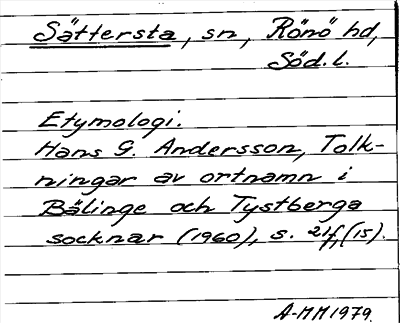 Sättersta, sn, Rönö hd,
Söd. l.
Etymologi:
Hans G. Andersson, Tolk-
ningar av ortnamn i
Bälinge och Tystberga
socknar (1960), s. 21f, (15).
A-MM 1979.